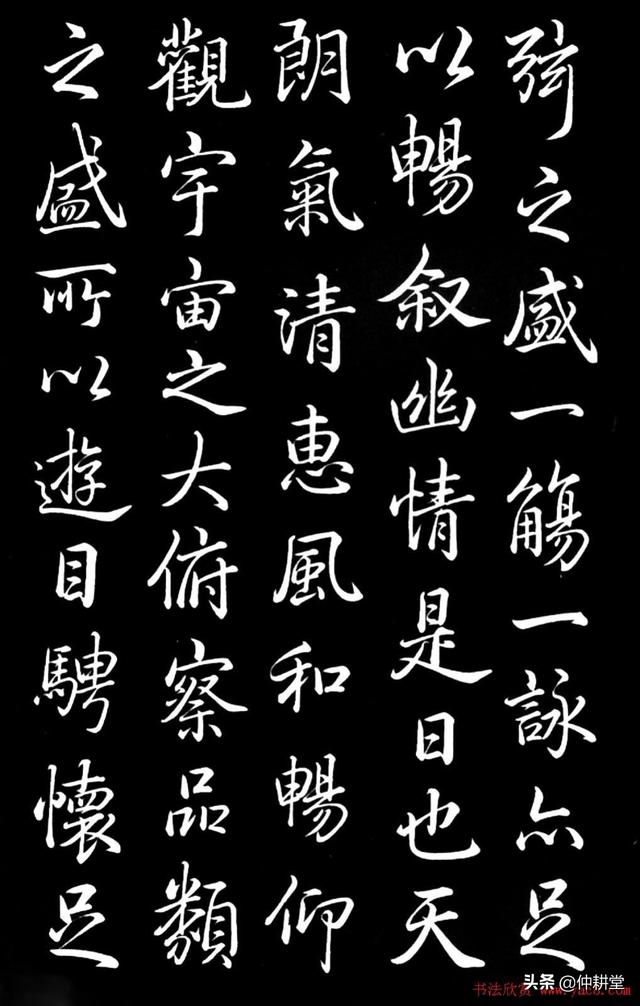 弦之盛一觴一詠亦足
以暢叙幽情是日也天
朗氣清惠風和暢仰
觀宇宙之大俯察品類
之盛所以遊目騁懷足
头条 @仲耕堂
书法欣赏